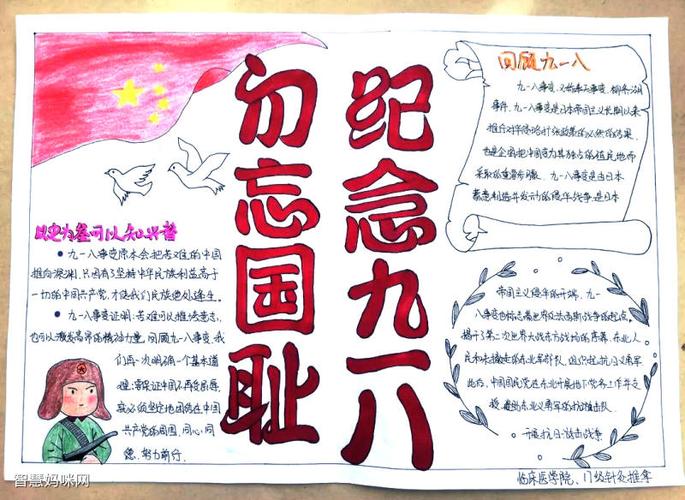 纪念九一八
勿忘国耻
以史为鉴可以知兴替
九一八事变原本会把苦难的中国
推向深渊,只因有了坚持中华民族利益高于
一切的中国共产党,才使我们民族绝处逢生。
九一八事变证明:苦难可以摧毁意志,
也可以激发高昂的精神力量。回顾九一八事变,我
们再一次明确一个基本道
理:需保证中国不再受屈辱,
就必须坚定地团结在中国
共产党的周围,同心同
德,努力前行。
回顾九一八
九一八事变,又称奉天事变、柳条湖
事件。九一八事变是日本帝国主义长期以来
推行对华侵略扩张政策的必然的结果,
也是企图把中国变为其独占的殖民地而
采取的重要步骤。九一八事变是由日本
蓄意制造并发动的侵华战争,是日本
帝国主义侵华的开端。九一
八事变也标志着世界反法西斯战争的起点,
揭开了第二次世界大战东方战场的序幕。东北人
民和未撤走的东北军部队,组织起抗日义勇军
此后,中国国民党在东北开展地下党务工作
东北义勇军等抗敌游击队。
开展抗日游击战争
临床医学院、针灸推拿
智慧妈咪网